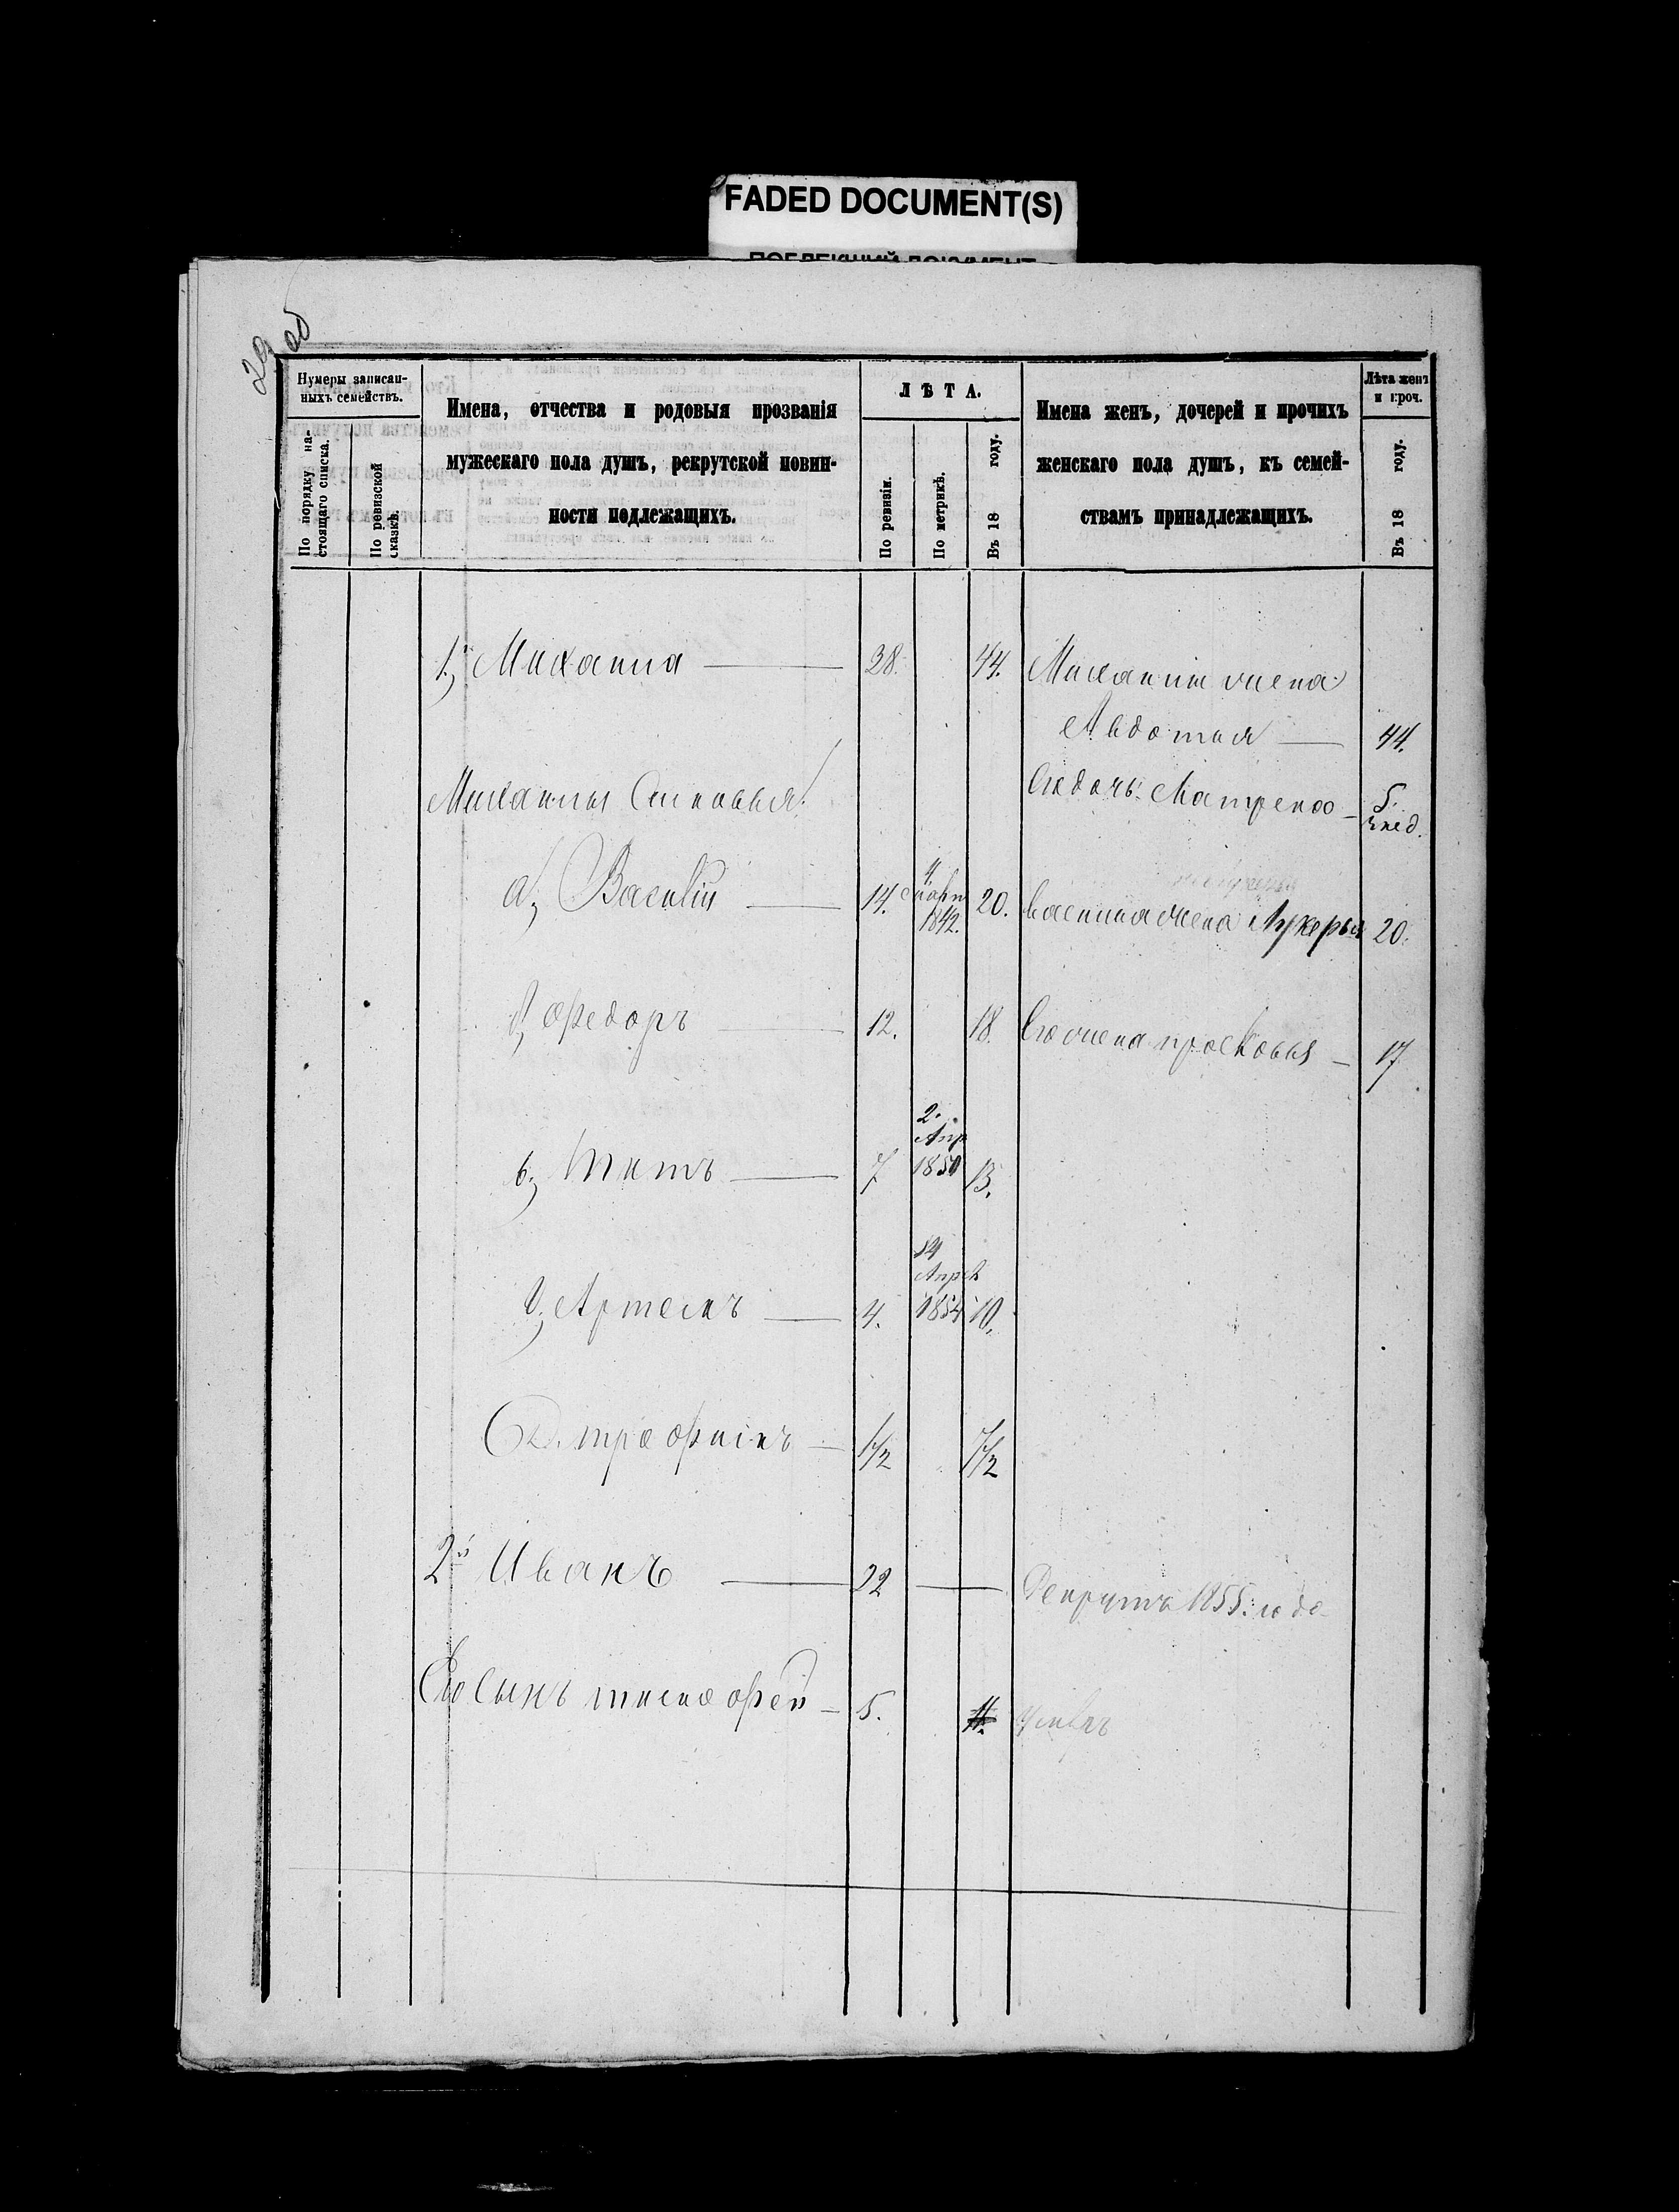 FADED DOCUMENT(S)
29 об
Нумеры записан-
ныхъ семействъ.
По порядку на-
стоящаго списка.
По ревизской
сказкѣ.
Имена, отчества и родовыя прозванія
мужескаго пола душъ, рекрутской повин-
ности подлежащихъ.
ЛѢТА.
По ревизіи.
По метрикѣ.
Въ 18 году.
Имена женъ, дочерей и прочихъ
женскаго пола душъ, къ семей-
ствамъ принадлежащихъ.
Лѣта женъ
и проч.
Въ 18 году.
1, Михаила 38. 44. Михаилы жена
Авдотья 44.
Михаилы Сыновья Ево дочь Матрена 5.
нед.
а, Василій 14. 4. марта 1842. 20. Василиа жена Лукерья 20.
б, Федоръ 12. 18. Ево жена прасковья 17
в, Титъ 7 2. Апр 1850 13.
г, Артемъ 4. Апреля 1854 10.
д. трафимъ 1/2 7/2
2й Иванъ 22 Рекрутъ 1855. года
Ево Сынъ тимофей 5. 11. Умеръ